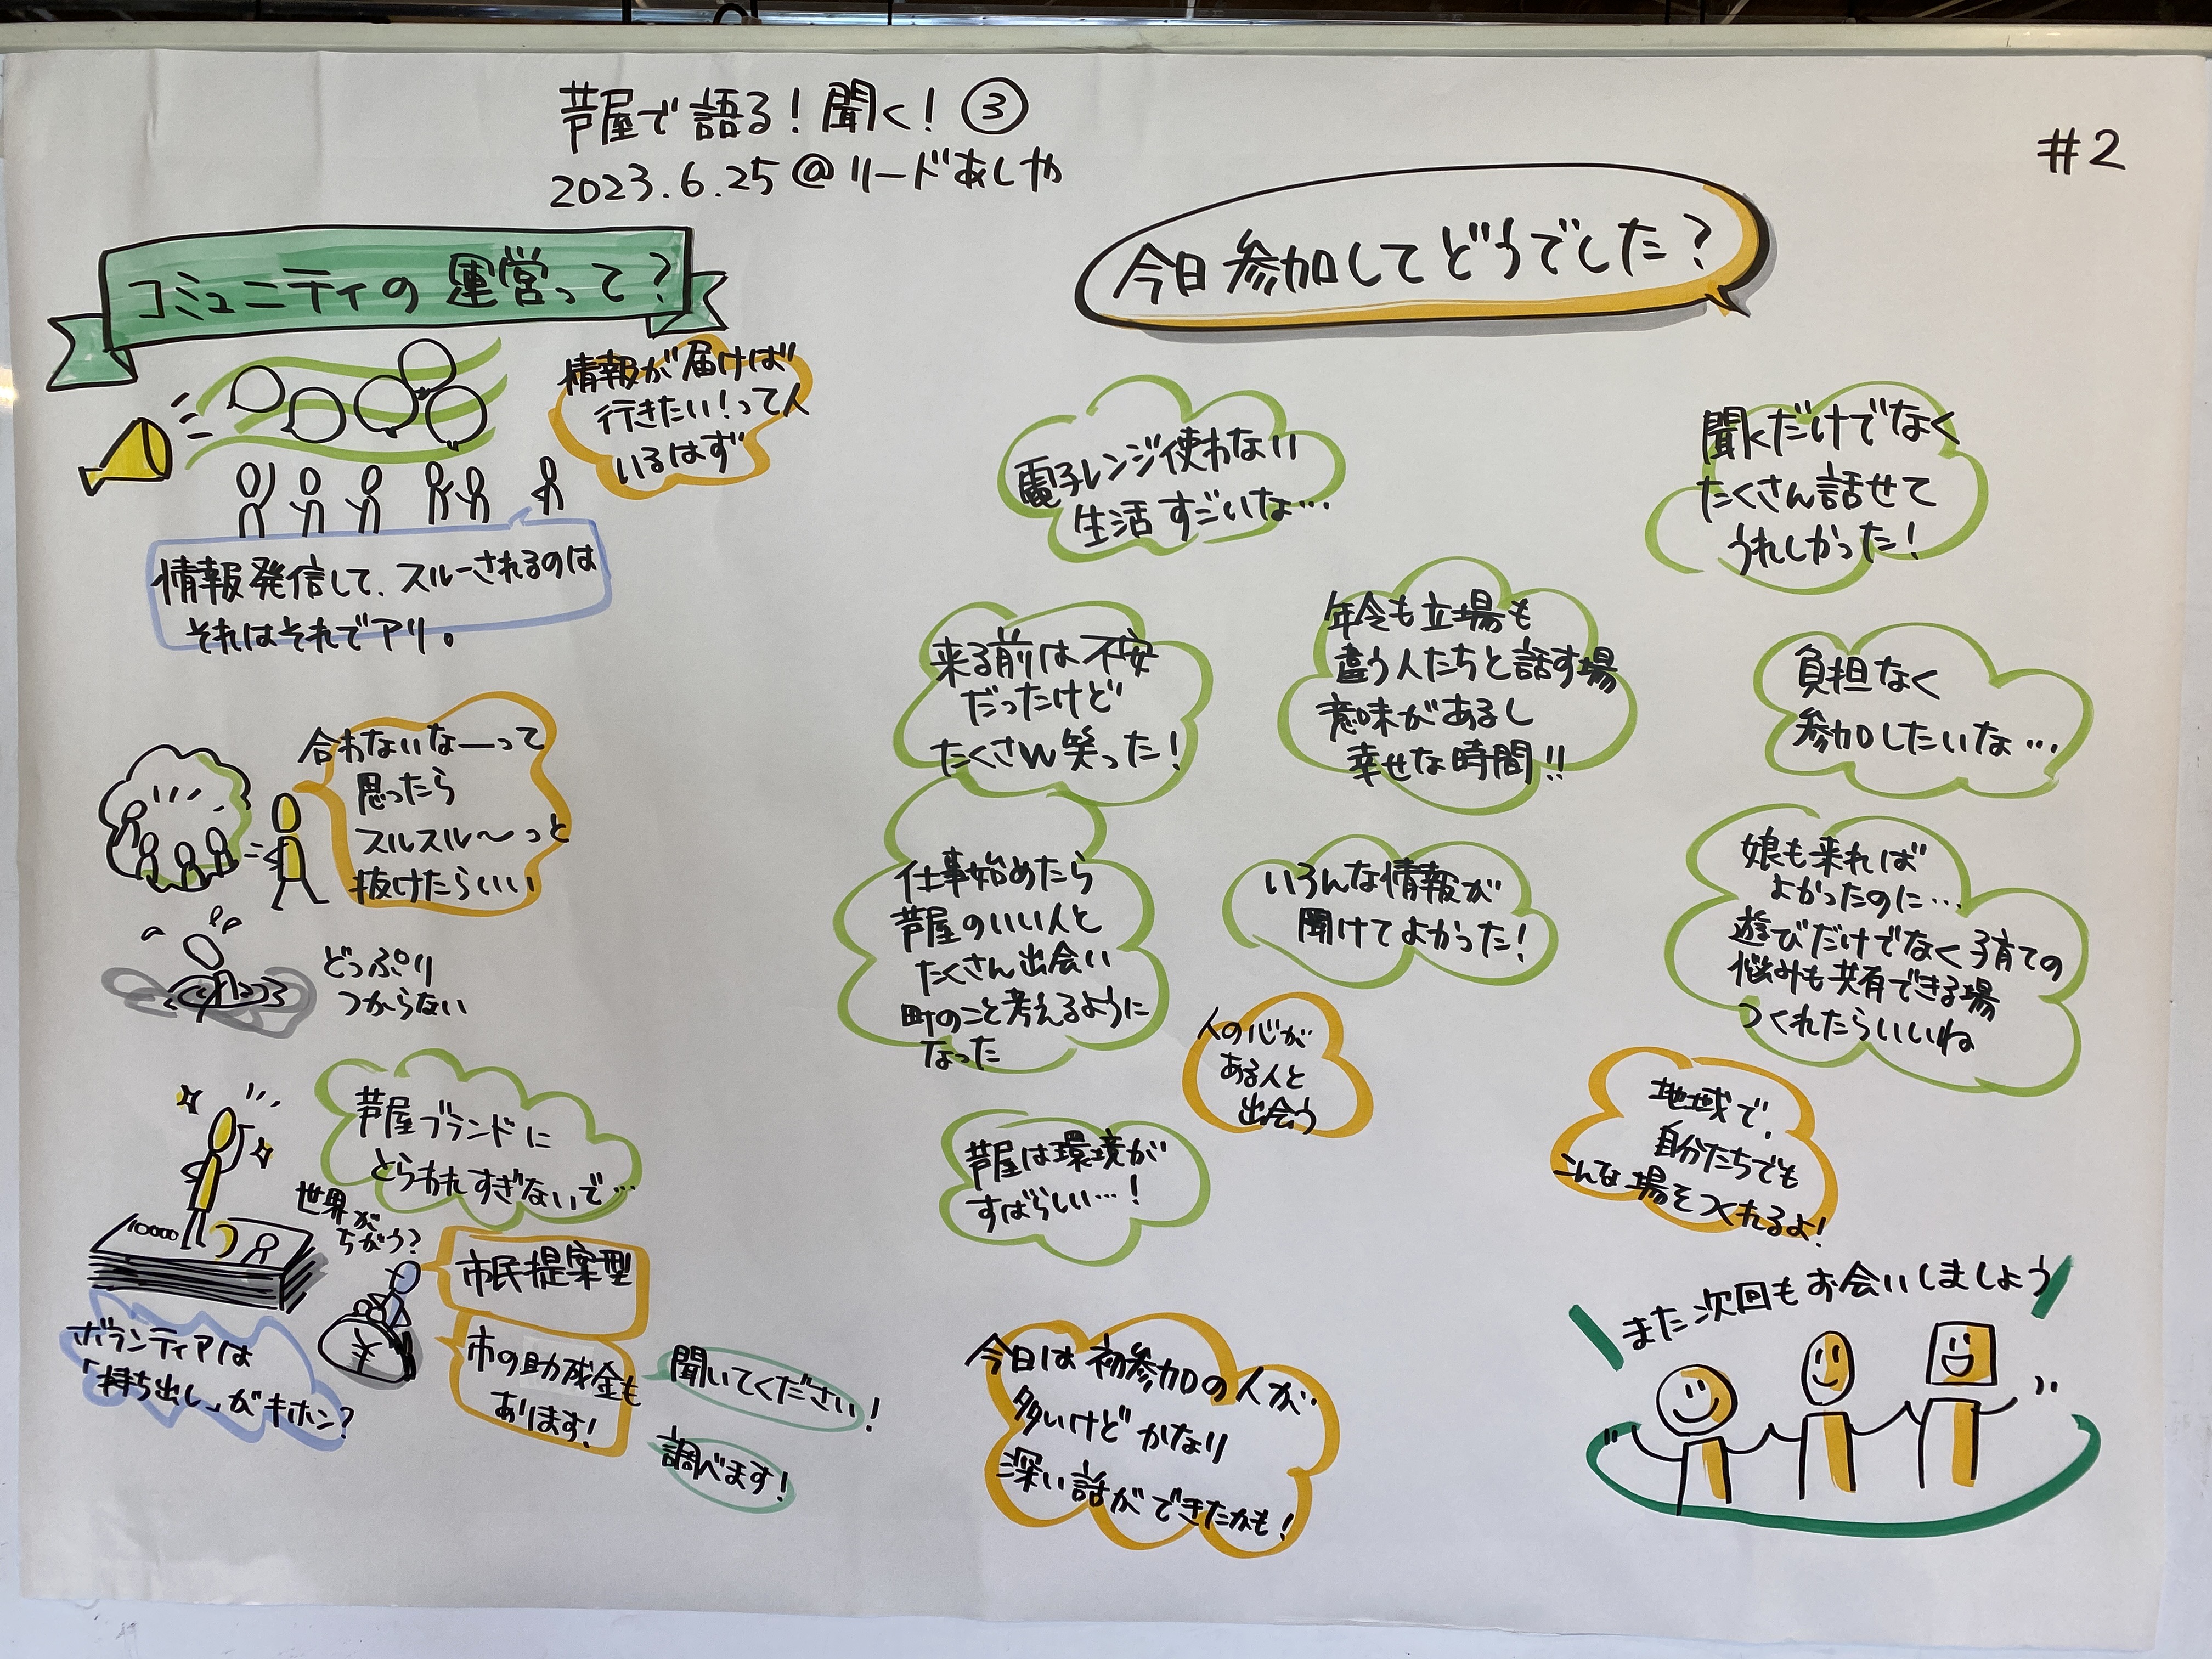 芦屋で語る！聞く！③
2023.6.25@リードあしや
#2
コミュニティの運営って？
情報が届けば
行きたい！って人
いるはず
情報発信して、スルーされるのは
それはそれでアリ。
合わないなーって
思ったら
スルスル〜っと
抜けたらいい
どっぷり
つからない
芦屋ブランドに
とらわれすぎないで…
世界が
ちがう？
10000
市民提案型
¥
市の助成金も
あります！
聞いてください！
調べます！
ボランティアは
「持ち出し」がキホン？
今日参加してどうでした？
電子レンジ使わない
生活すごいな…
聞くだけでなく
たくさん話せて
うれしかった！
来る前は不安
だったけど
たくさん笑った！
年令も立場も
違う人たちと話す場
意味があるし
幸せな時間！！
負担なく
参加したいな…
仕事始めたら
芦屋のいい人と
たくさん出会い
町のこと考えるように
なった
いろんな情報が
聞けてよかった！
娘も来れば
よかったのに…
遊びだけでなく子育ての
悩みも共有できる場
つくれたらいいね
人の心が
ある人と
出会う
芦屋は環境が
すばらしい…！
地域で、
自分たちでも
こんな場をつくれるよ！
今日は初参加の人が
多いけどかなり
深い話ができたかも！
また次回もお会いしましょう